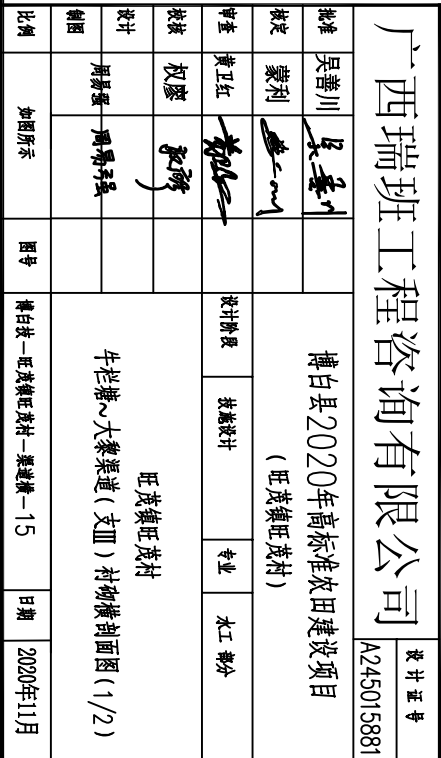 广西瑞班工程咨询有限公司
设计证号
A245015881
批准 吴善川
核定 蒙利
审查 黄卫红
校核 权廖
设计 周易强 周易强
制图
比例 如图所示
博白县2020年高标准农田建设项目
(旺茂镇旺茂村)
设计阶段 技施设计 专业 水工 部分
旺茂镇旺茂村
牛栏塘~大黎渠道(支Ⅲ)衬砌横剖面图(1/2)
图号 博白技—旺茂镇旺茂村—渠道横—15
日期 2020年11月